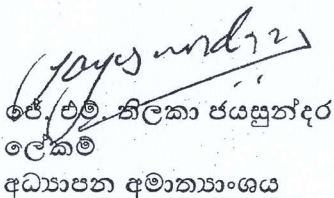 ජේ. එම්. තිලකා ජයසුන්දර
ලේකම්
අධ්‍යාපන අමාත්‍යාංශය